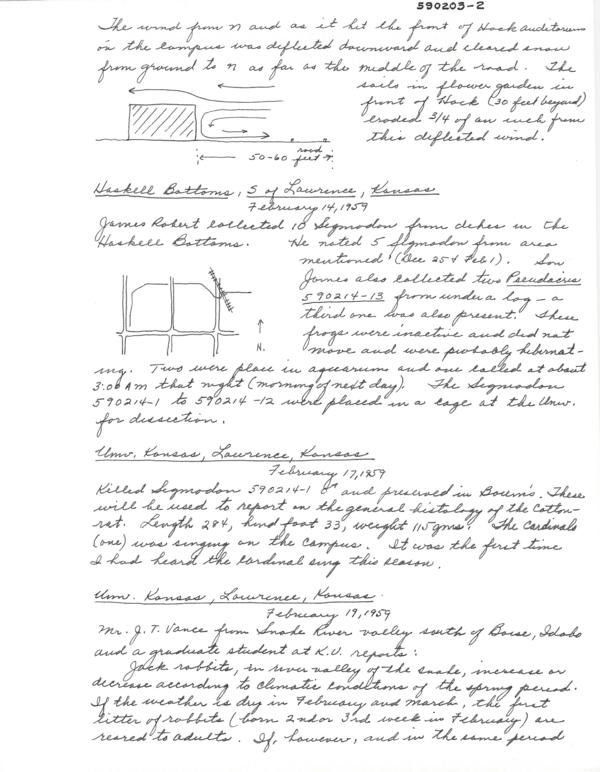 590203-2
The wind from N and as it hit the front of Hock auditorium
on the campus was deflected downward and cleared snow
from ground to N as far as the middle of the road. The
soils in flower garden in
front of Hock (30 feet beyond)
eroded 3/4 of an inch from
this deflected wind.
road
50-60 feet
Haskell Bottoms, S of Lawrence, Kansas
February 14, 1959
James Robert collected 10 Sigmodon from dikes in the
Haskell Bottoms. He noted 5 sigmodon from area
mentioned (Dec 25 & Feb 1). Son
James also collected two Pseudacris
590214-13 from under a log - a
third one was also present. These
frogs were inactive and did not
move and were probably hibernat-
N.
ing. Two were place in aquarium and one called at about
3:00 AM that night (morning of next day). The Sigmodon
590214-1 to 590214-12 were placed in a cage at the Univ.
for dissection.
Univ. Kansas, Lawrence, Kansas
February 17, 1959
Killed Sigmodon 590214-1 ♂ and preserved in Bouin's. These
will be used to report on the general histology of the Cotton-
rat. Length 284, hind foot 33, weight 115 gms. The Cardinals
(one) was singing on the campus. It was the first time
I had heard the Cardinal sing this season.
Univ. Kansas, Lawrence, Kansas.
February 19, 1959
Mr. J. T. Vance from Snake River valley south of Boise, Idaho
and a graduate student at K.U. reports:
Jack rabbits, in river valley of the snake, increase or
decrease according to climatic conditions of the spring period.
If the weather is dry in February and March, the first
litter of rabbits (born 2nd or 3rd week in February) are
reared to adults. If, however, and in the same period